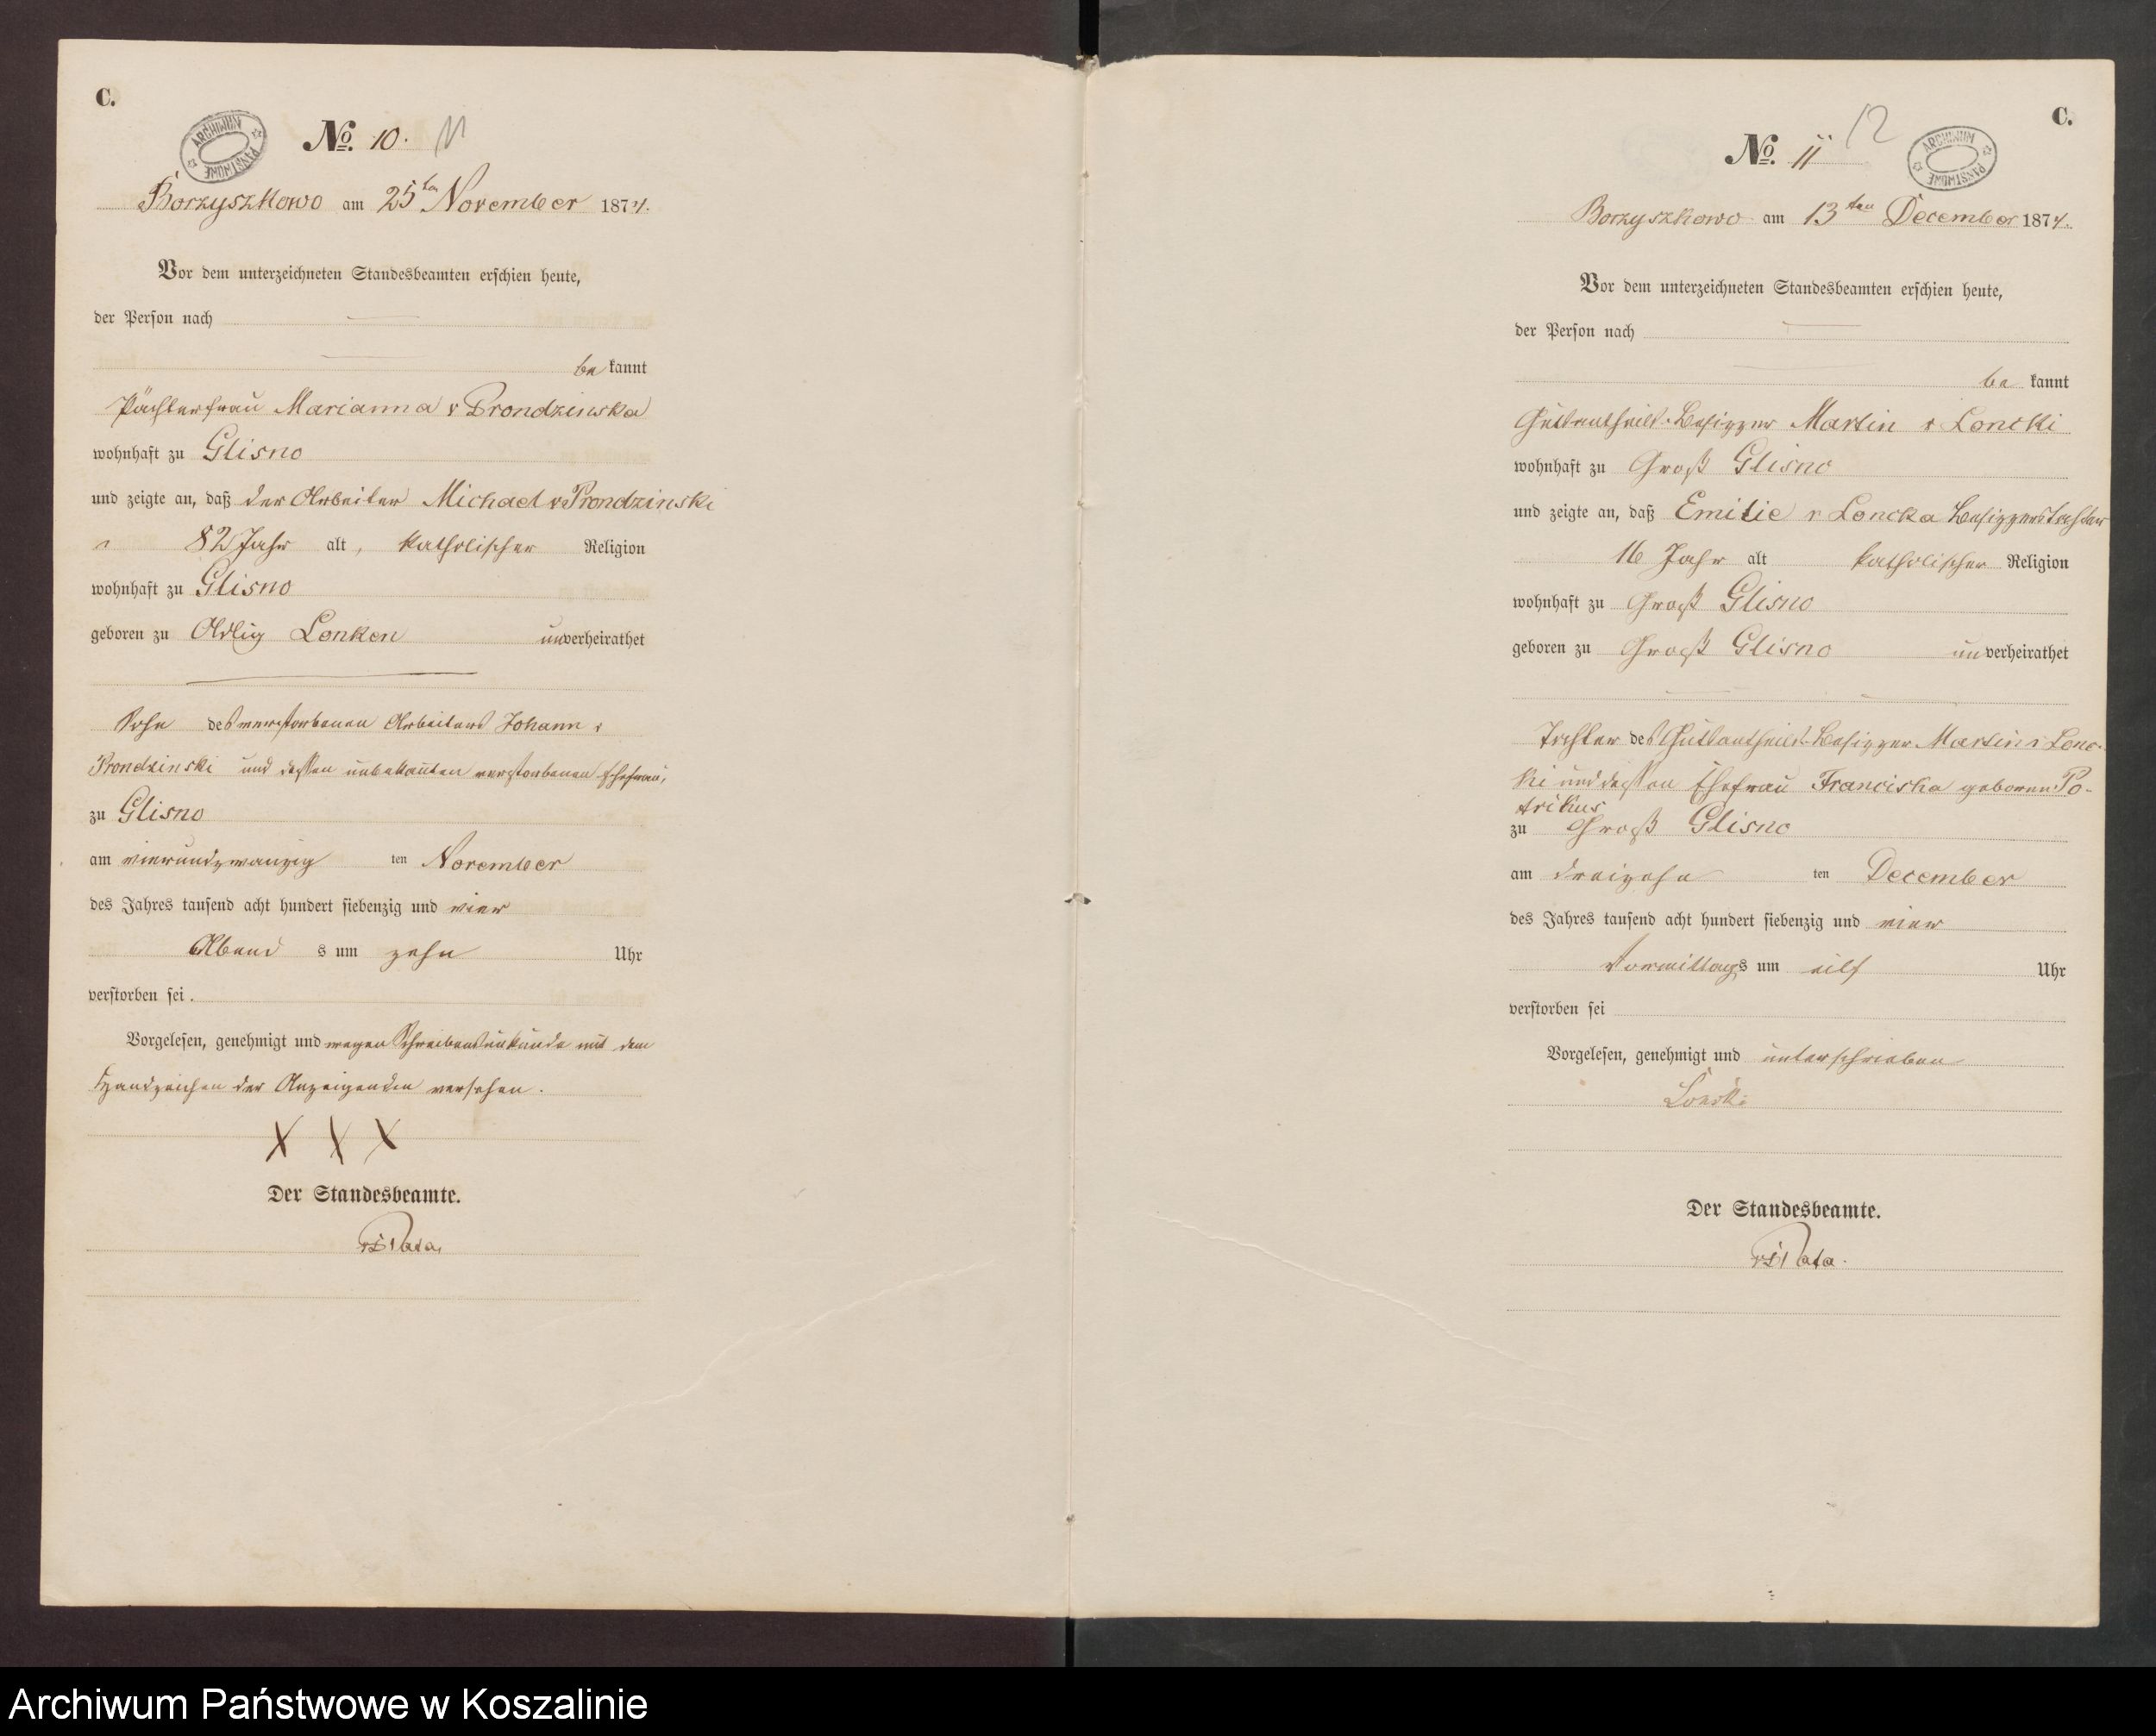 C.
ARCHIWUM PAŃSTWOWE
No. 10. 11
Borzyszkowo am 25ten November 1874.
Vor dem unterzeichneten Standesbeamten erschien heute,
der Person nach
bekannt
Pächterfrau Marianna v Prondzinska
wohnhaft zu Glisno
und zeigte an, daß der Arbeiter Michael v Prondzinski
82 Jahr alt, katholischer Religion
wohnhaft zu Glisno
geboren zu Adlig Lonken unverheirathet
Sohn des verstorbenen Arbeiters Johann v
Prondzinski und dessen unbekannten verstorbenen Ehefrau,
zu Glisno
am vierundzwanzig ten November
des Jahres tausend acht hundert siebenzig und vier
Abends um zehn Uhr
verstorben sei.
Vorgelesen, genehmigt und wegen Schreibensunkunde mit dem
Handzeichen der Anzeigenden versehen.
X X X
Der Standesbeamte.
C.
No. 11 12
ARCHIWUM PAŃSTWOWE
Borzyszkowo am 13ten December 1874.
Vor dem unterzeichneten Standesbeamten erschien heute,
der Person nach
bekannt
Gutsantheils-Besitzer Martin v Loncki
wohnhaft zu Groß Glisno
und zeigte an, daß Emilie v Loncka Besitzerstochter
16 Jahr alt katholischer Religion
wohnhaft zu Groß Glisno
geboren zu Groß Glisno unverheirathet
Tochter des Gutsantheils-Besitzer Martin v Lonc-
ki und dessen Ehefrau Franciska geborene Po-
trikus
zu Groß Glisno
am dreizehn ten December
des Jahres tausend acht hundert siebenzig und vier
Vormittags um eilf Uhr
verstorben sei
Vorgelesen, genehmigt und unterschrieben
Loncki
Der Standesbeamte.
Archiwum Państwowe w Koszalinie